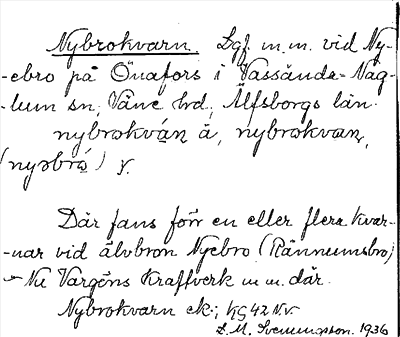 Nybrokvarn. Lgf. m.m. vid Ny-
-ebro på Önafors i Vassända-Nag-
-lum sn, Väne hd., Älfsborgs län.
nybrokván å, nybrokvan,
(nyəbró) v.
Där fans förr en eller flera kvar-
-nar vid älvbron Nyebro (Rännumsbro)
- Nu Vargöns Kraftverk m m. där.
Nybrokvarn ek.; KG 42 Nv.
1936